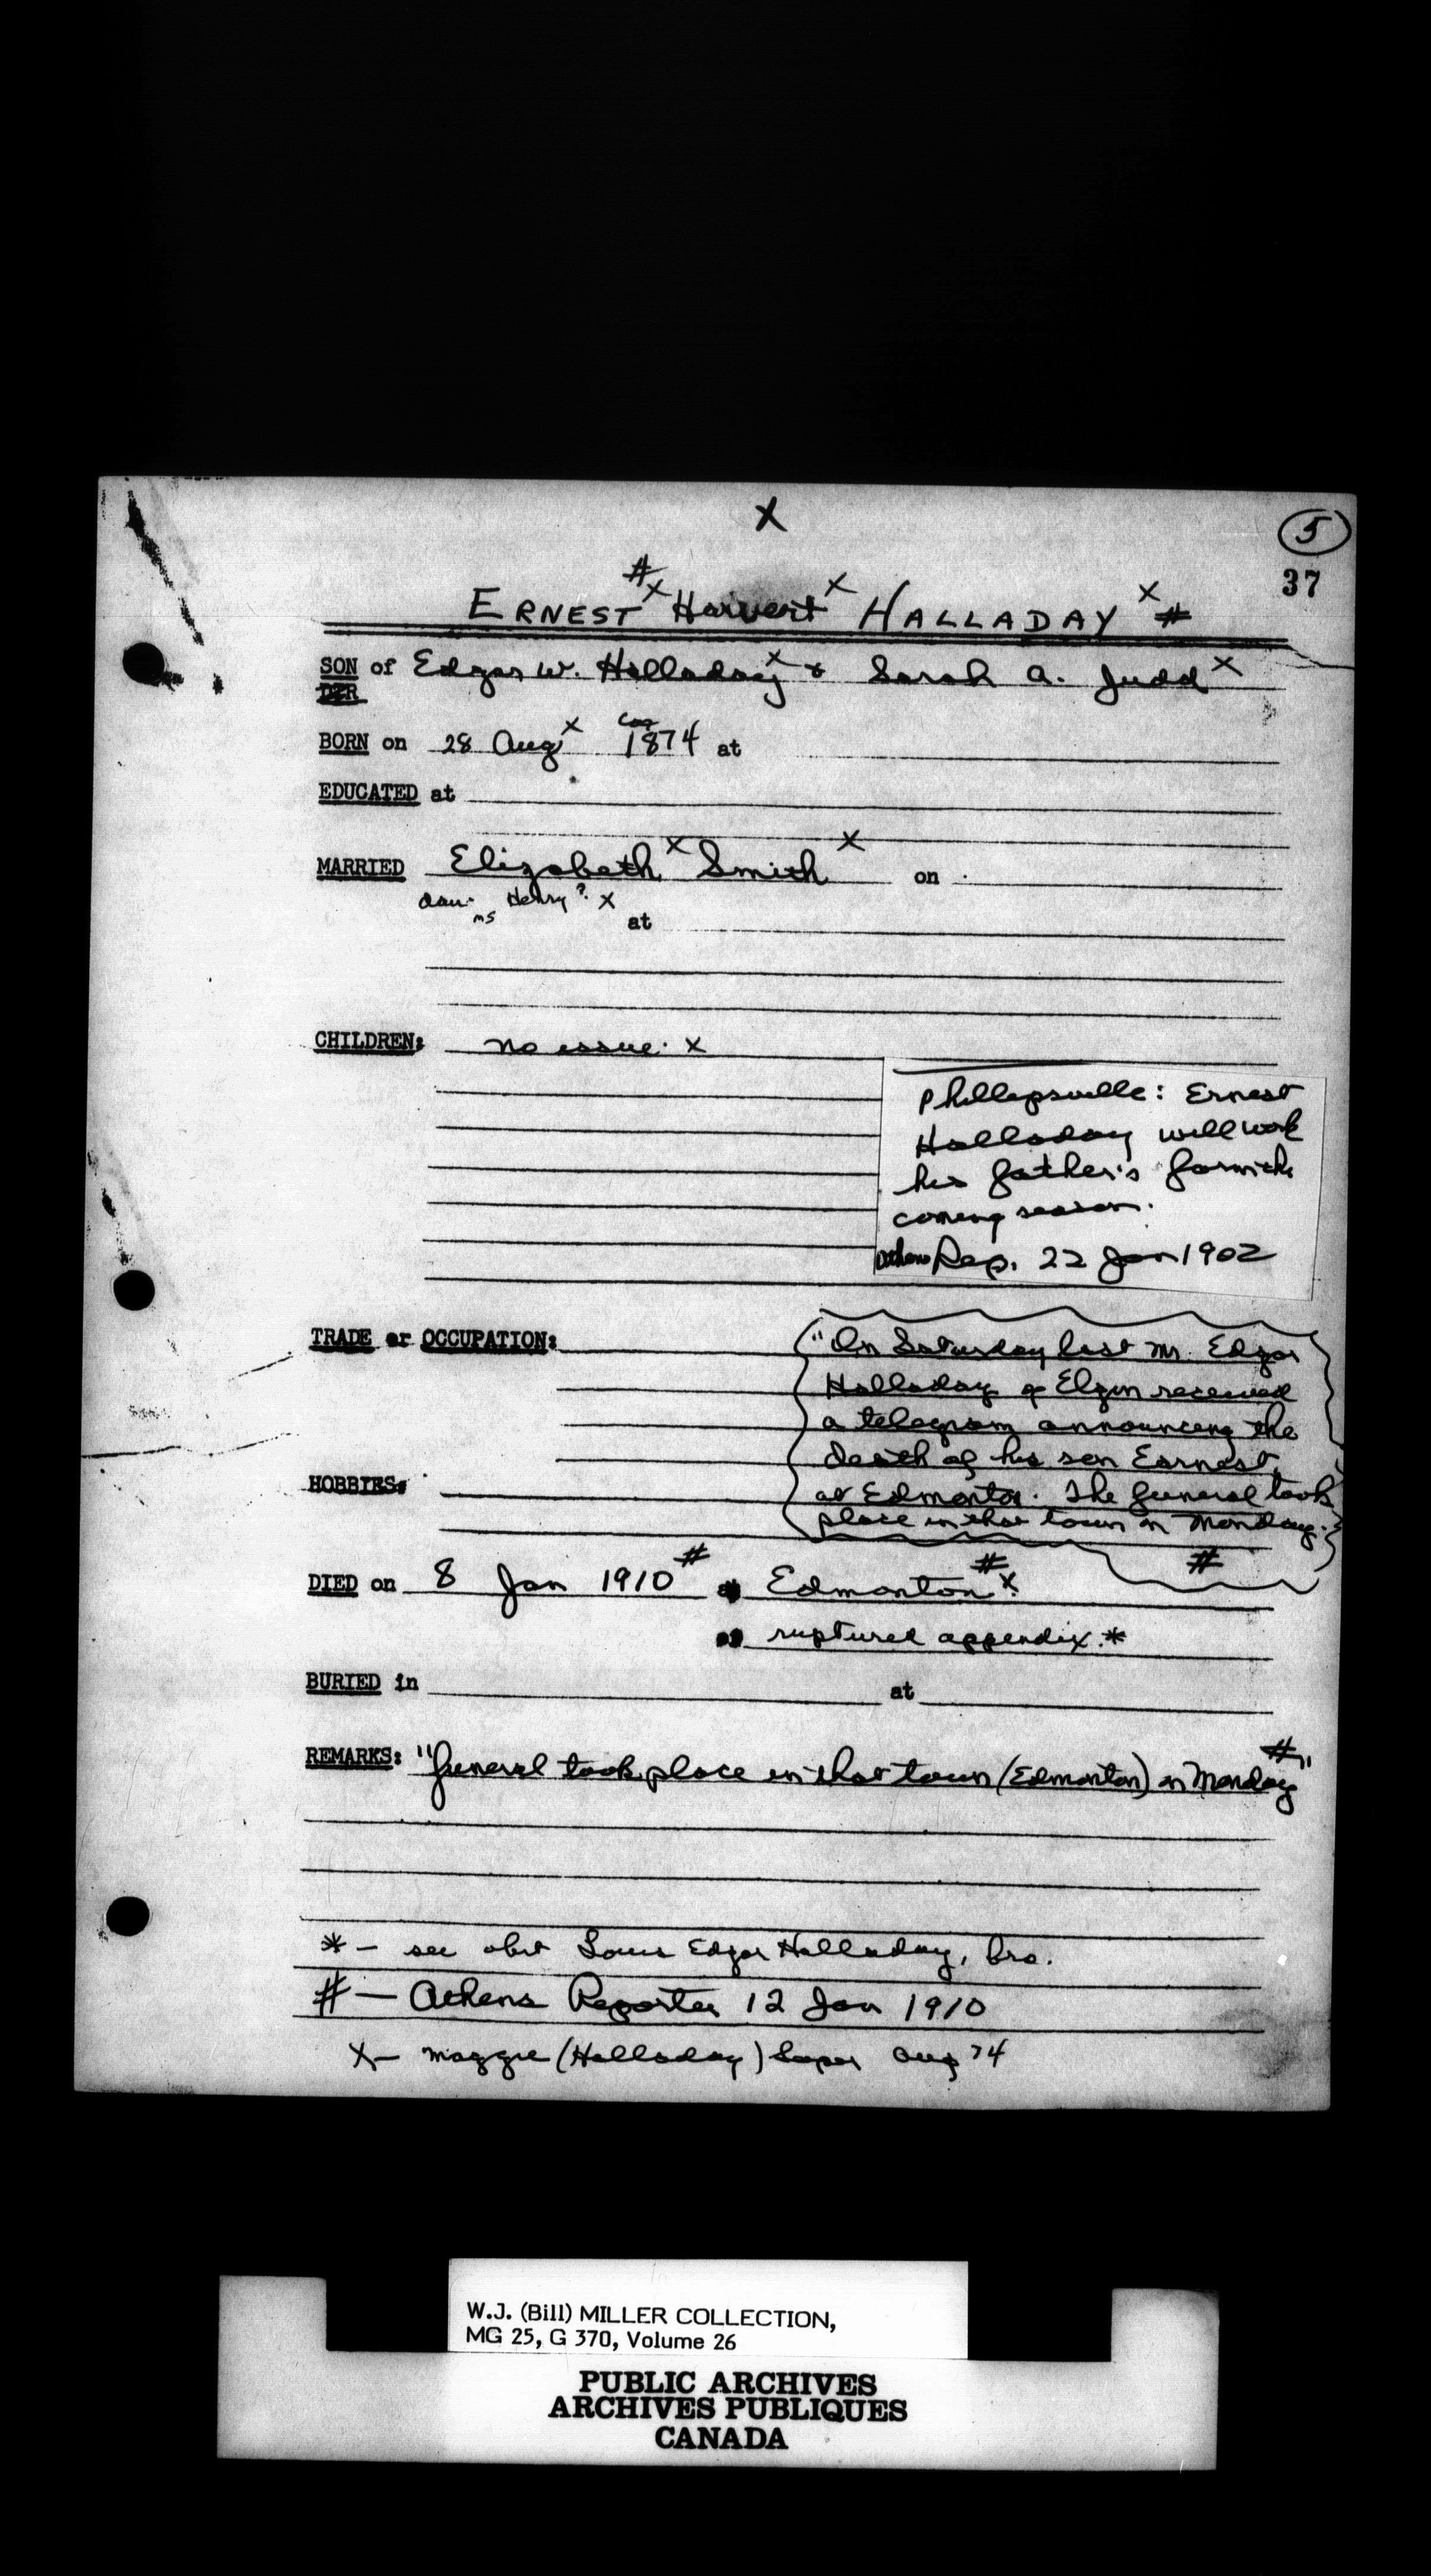 X
5
37
#
ERNEST X Harvert X HALLADAY X #
SON of Edgar W. Halladay X & Sarah A. Judd X
DTR
BORN on 28 Aug X Cas 1874 at
EDUCATED at
MARRIED Elizabeth X Smith X on
dau. Henry ? X
ms
at
CHILDREN: no issue. X
Phillipsville: Ernest
Halladay will work
his father's farm the
coming season.
Athens Rep. 22 Jan 1902
TRADE or OCCUPATION:
"On Saturday last Mr. Edgar
Halladay of Elgin received
a telegram announcing the
death of his son Earnest
at Edmonton. The funeral took
place in that town on Monday.
#
HOBBIES:
DIED on 8 Jan 1910 # Edmonton # X
of ruptured appendix. *
BURIED in at
REMARKS: "funeral took place in that town (Edmonton) on Monday #"
* – see obit Louis Edgar Halladay, bro.
# – Athens Reporter 12 Jan 1910
X – Maggie (Halladay) Soper Aug 74
W.J. (Bill) MILLER COLLECTION,
MG 25, G 370, Volume 26
PUBLIC ARCHIVES
ARCHIVES PUBLIQUES
CANADA